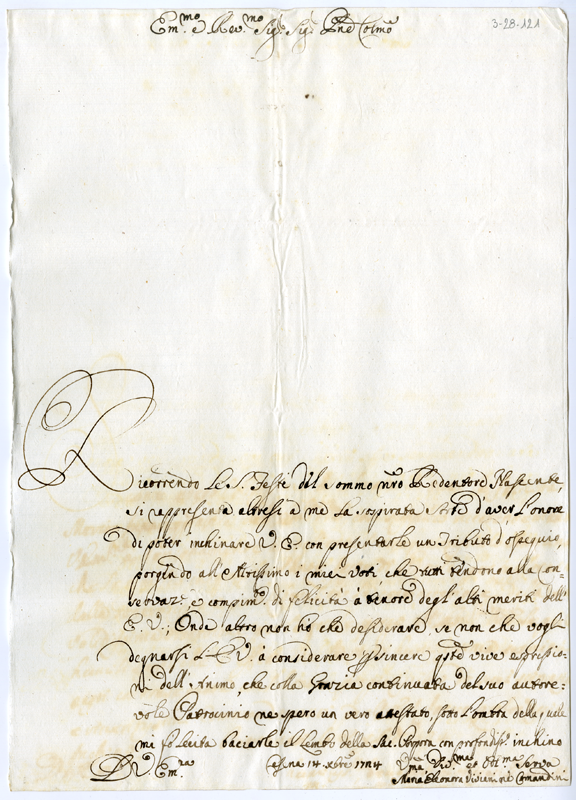 3-28-121
Em.mo e Rev.mo Sig.r Sig.r Pne Colmo
Ricorrendo Le S. Feste del sommo nro Redentore Nascente,
si rappresenta altresi a me la sospirata Sorte d'aver l'onore
di poter inchinare V. E. con presentarle un Tributo d'ossequio,
porgendo all'Altissimo i miei voti che tutti tendono alla con-
servaz.e e compim.to di felicità à tenore degl'alti meriti dell'
E. V., Onde altro non ho che desiderare, se non che vogli
degnarsi L'E V. à considerare sincere qste vive espressio-
ni dell'Animo, che colla Grazia continuata del suo autore-
vole Patrocinio ne spero un vero attestato, sotto l'ombra della quale
mi fò lecita baciarle il lembo della Sac. Porpora con profondis.o inchino
D V. Em.za
Cesena 14 Xbre 1714
Um.ma Div.ma et Obl.ma Serva
Maria Eleonora Viviani ne Comandini